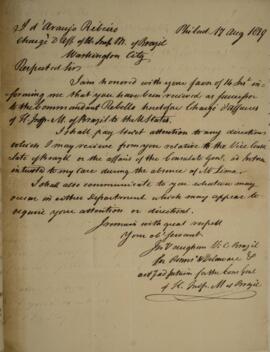 J. d'Araujo Ribeiro
Philad. 17 Aug 1829
Chargé d'Aff of his Imp. M. of Brazil
Washington City
Respected Sir
I am honored with your favor of 14 Inst in-
forming me that you have been received as successor
to the Commandant Rebello heretofore Chargé d'Affaires
of H. Imp. M. of Brazil to the U States.
I shall pay strict attention to any directions
which I may receive from you relative to the Vice Consu
late of Brazil or the affairs of the Consulate Genl.
intrusted to my care during the absence of M. Lima.
I shall also communicate to you whatever may
occur in either Department which may appear to
require your attention or direction.
I remain with great respect
Your ob. Servant
Jn Vaughan V. C. Brazil
for Penns. & Delaware &
act ad interim for the Cons Genl
of H. Imp. M. of Brazil